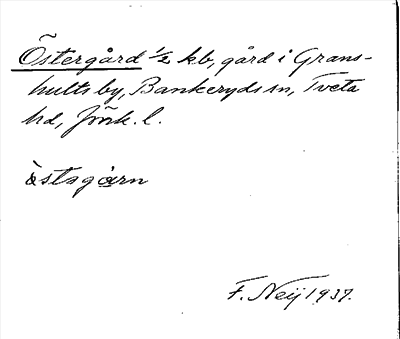 Östergård ½ kb, gård i Grans-
hults by, Bankeryds sn, Tveta
hd, Jönk. l.
östagɑrn
F. Neij 1937.